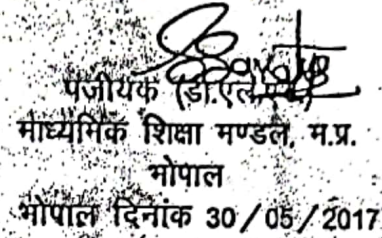 पंजीयक (डी.एल.एड)
माध्यमिक शिक्षा मण्डल, म.प्र.
भोपाल
भोपाल दिनांक 30/05/2017